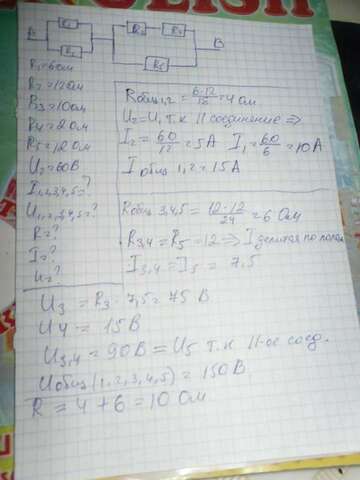 ENGLISH
R₁ R₃ R₄
A B
R₂ R₅
R₁=6 Ом
R₂=12 Ом
R₃=10 Ом
R₄=2 Ом
R₅=12 Ом
U₂=60В
I₁,₂,₃,₄,₅=?
U₁,₂,₃,₄,₅=?
R=?
I=?
U=?
Rобщ 1,2 = 6·12/18 = 4 Ом
U₂=U₁ т.к || соединение ⇒
I₂ = 60/12 = 5А I₁ = 60/6 = 10 А
I общ 1,2 = 15А
Rобщ 3,4,5 = 12·12/24 = 6 Ом
R₃,₄ = R₅ = 12 ⇒ I делится по полам
I₃,₄ = I₅ = 7,5
U₃ = R₃ · 7,5 = 75 В
U₄ = 15В
U₃,₄ = 90В = U₅ т.к ||-ое соед.
Uобщ(1,2,3,4,5) = 150В
R = 4 + 6 = 10 Ом